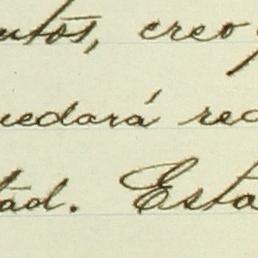 utos, creo
uedará red
tad. Esta